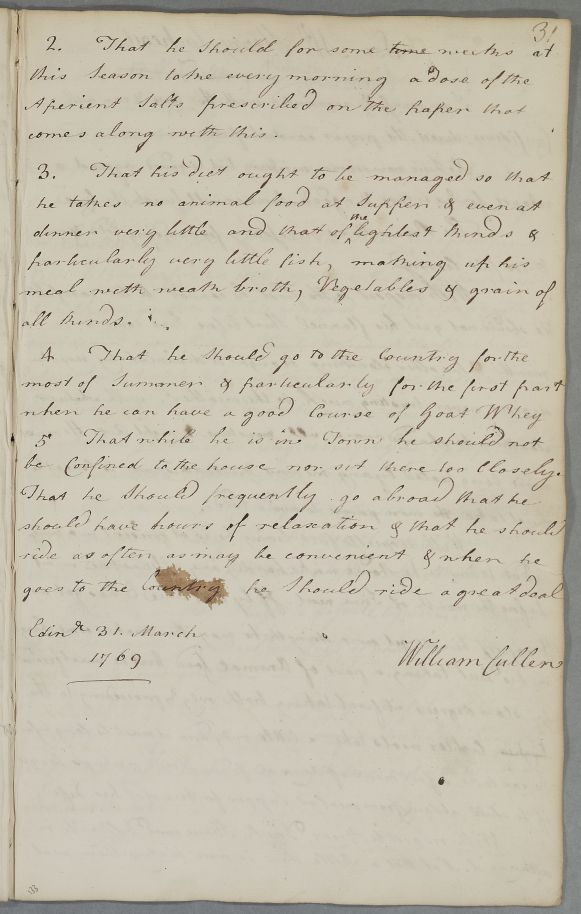 31
2. That he should for some time weeks at
this Season take every morning a dose of the
Aperient Salts prescribed on the paper that
comes along with this.
3. That his diet ought to be managed so that
he takes no animal food at Supper & even at
dinner very little and that of the lightest kinds &
particularly very little fish, making up his
meal with weak broth, Vegetables & grain of
all kinds.
4 That he should go to the Country for the
most of Summer & particularly for the first part
when he can have a good Course of Goat Whey
5 That while he is in Town he should not
be Confined to the house nor sit there too Closely.
That he should frequently go abroad that he
should have hours of relaxation & that he should
ride as often as may be convenient & when he
goes to the Country he should ride a great deal
Edinr. 31. March
1769
William Cullen